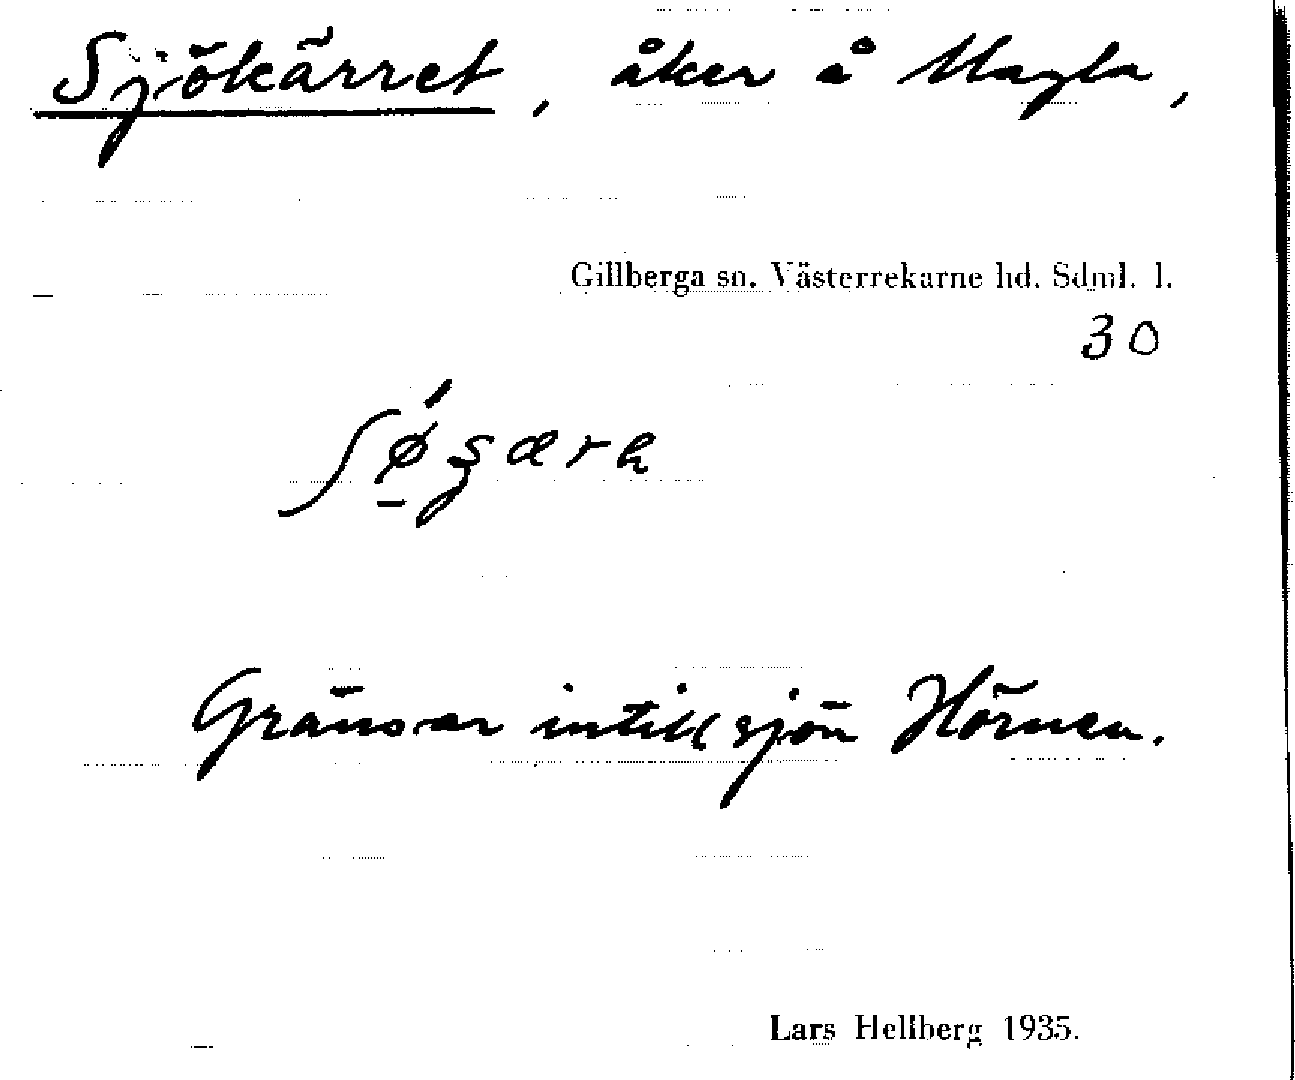 Sjökärret, åker å Hagla,
Gillberga sn. Västerrekarne hd. Sdml. l.
30
Gränsar intill sjön Hörnen.
Lars Hellberg 1935.